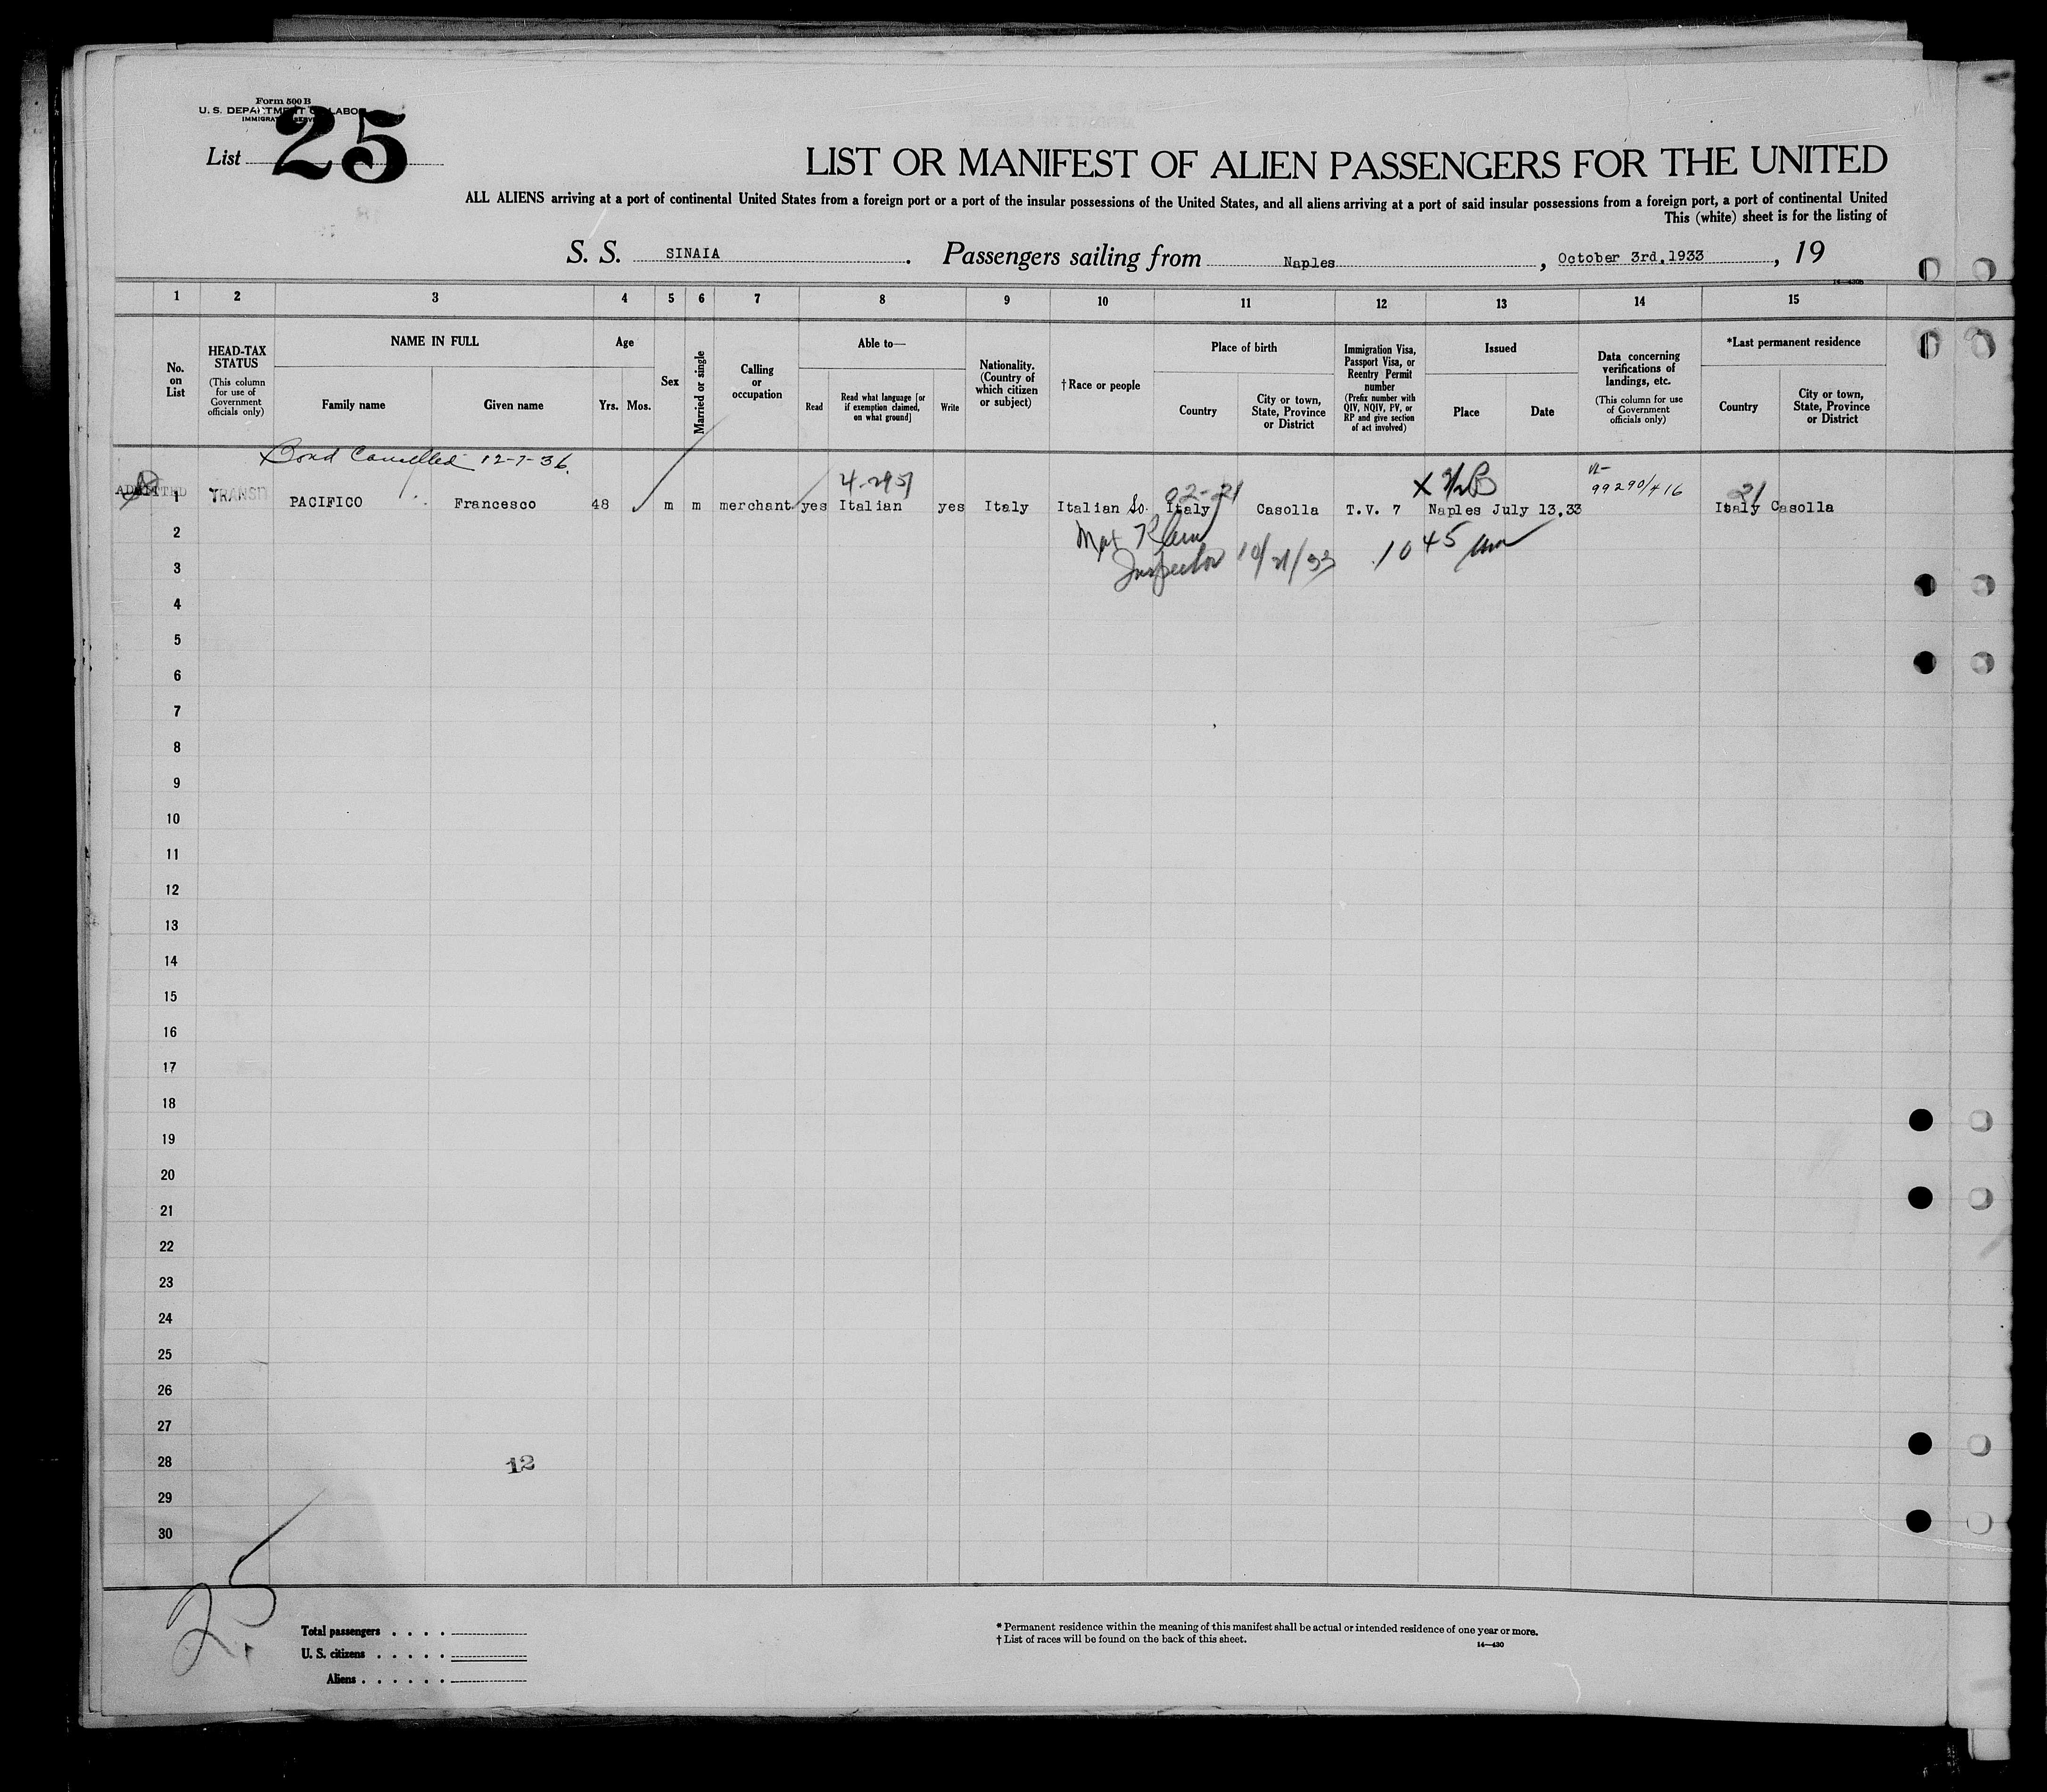 Form 500 B
U. S. DEPARTMENT OF LABOR
IMMIGRATION SERVICE
List 25
LIST OR MANIFEST OF ALIEN PASSENGERS FOR THE UNITED
ALL ALIENS arriving at a port of continental United States from a foreign port or a port of the insular possessions of the United States, and all aliens arriving at a port of said insular possessions from a foreign port, a port of continental United
This (white) sheet is for the listing of
S. S. SINAIA . Passengers sailing from Naples , October 3rd.1933 , 19
14—430B
1 2 3 4 5 6 7 8 9 10 11 12 13 14 15
No. on List
HEAD-TAX STATUS (This column for use of Government officials only)
NAME IN FULL
Family name Given name
Age
Yrs. Mos.
Sex
Married or single
Calling or occupation
Able to—
Read Read what language [or if exemption claimed, on what ground] Write
Nationality. (Country of which citizen or subject)
†Race or people
Place of birth
Country City or town, State, Province or District
Immigration Visa, Passport Visa, or Reentry Permit number (Prefix number with QIV, NQIV, PV, or RP and give section of act involved)
Issued
Place Date
Data concerning verifications of landings, etc. (This column for use of Government officials only)
*Last permanent residence
Country City or town, State, Province or District
Bond Cancelled 12-7-36.
4-2951 02-21 99290/416 21
ADMITTED 1 TRANSIT PACIFICO Francesco 48 m m merchant yes Italian yes Italy Italian So. Italy Casolla T.V. 7 Naples July 13.33 Italy Casolla
2 Max Klein
3 Inspector 10/21/33 10 45 am
4
5
6
7
8
9
10
11
12
13
14
15
16
17
18
19
20
21
22
23
24
25
26
27
28 12
29
30
25
Total passengers . . . .
U. S. citizens . . . . .
Aliens . . . . . .
* Permanent residence within the meaning of this manifest shall be actual or intended residence of one year or more.
† List of races will be found on the back of this sheet.
14—430